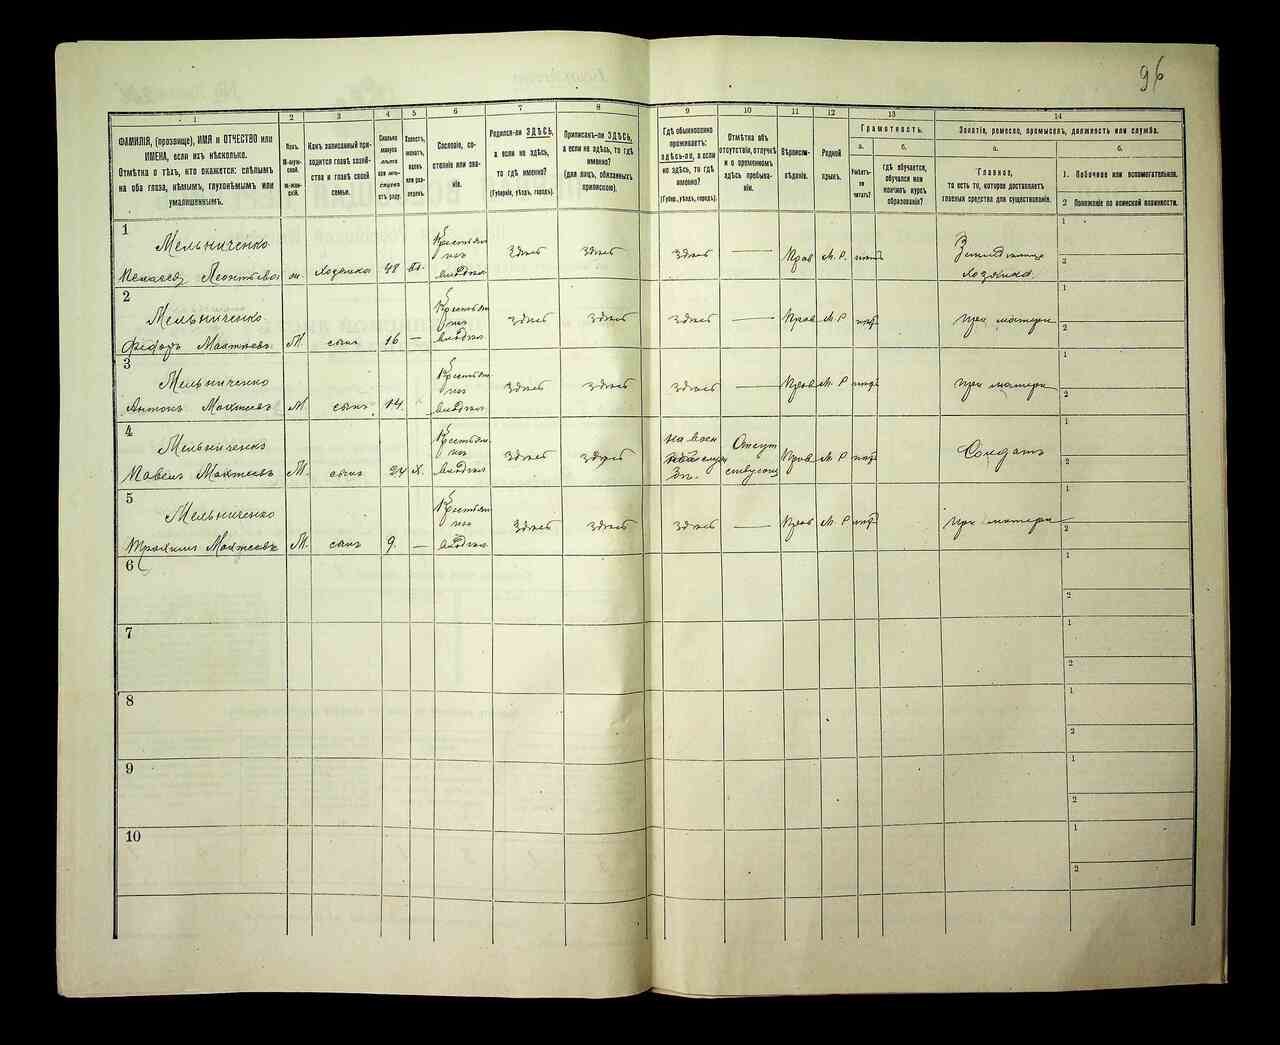 96
1
2
3
4
5
6
7
8
9
10
11
12
13
14
ФАМИЛІЯ, (прозвище), ИМЯ и ОТЧЕСТВО или
ИМЕНА, если ихъ нѣсколько.
Отмѣтка о тѣхъ, кто окажется: слѣпымъ
на оба глаза, нѣмымъ, глухонѣмымъ или
умалишеннымъ.
Полъ.
М-муж-
ской.
Ж-жен-
скій.
Какъ записанный при-
ходится главѣ хозяй-
ства и главѣ своей
семьи.
Сколько
минуло
лѣтъ
отъ роду.
Холостъ,
женатъ,
вдовъ
или раз-
веденъ.
Сословіе, со-
стояніе или зва-
ніе.
Родился-ли ЗДѢСЬ,
а если не здѣсь,
то гдѣ именно?
(Губернія, уѣздъ, городъ).
Приписанъ-ли ЗДѢСЬ,
а если не здѣсь, то гдѣ
именно?
(для лицъ, обязанныхъ
припискою).
Гдѣ обыкновенно
проживаетъ:
здѣсь-ли, а если
не здѣсь, то гдѣ
именно?
(Губер., уѣздъ, городъ).
Отмѣтка объ
отсутствіи, отлучкѣ
и о временномъ
здѣсь пребыва-
ніи.
Вѣроиспо-
вѣданіе.
Родной
языкъ.
Грамотность.
а.
Умѣетъ-
ли
читать?
б.
гдѣ обучается,
обучался или
кончилъ курсъ
образованія?
Занятіе, ремесло, промыселъ, должность или служба.
а.
Главное,
то есть то, которое доставляетъ
главныя средства для существованія.
б.
1. Побочное или вспомогательное.
2 Положеніе по воинской повинности.
1
Мельниченко
Леонтьева
ж.
Хозяйка
48
вд.
Крестьян
изъ
владѣл
здѣсь
здѣсь
здѣсь
—
Прав
М. Р.
Хозяйка
1
2
2
Мельниченко
Федоръ
М.
сынъ
16
—
Крестьян
изъ
владѣл
здѣсь
здѣсь
здѣсь
—
Прав
М. Р
при матери
1
2
3
Мельниченко
Антонъ
М.
сынъ
14.
х
Крестьян
изъ
владѣл
здѣсь
здѣсь
здѣсь
—
Прав
М. Р
при матери
1
2
4
Мельниченко
Павелъ
М.
сынъ
24
х.
Крестьян
изъ
владѣл
здѣсь
здѣсь
на воен
Отсут
ствующ
Прав
М. Р
Солдатъ
1
2
5
Мельниченко
М.
сынъ
9.
—
Крестьян
изъ
владѣл
здѣсь
здѣсь
здѣсь
—
Прав
М. Р
при матери
1
2
6
1
2
7
1
2
8
1
2
9
1
2
10
1
2